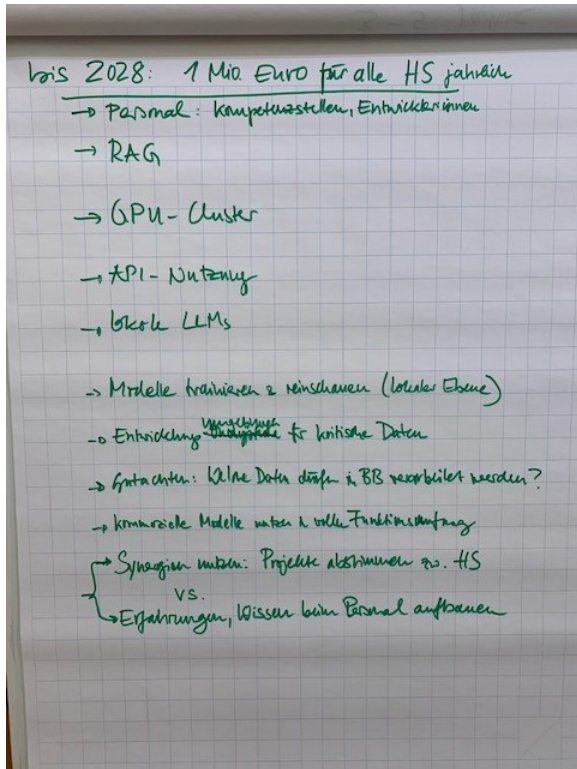 bis 2028: 1 Mio. Euro für alle HS jährlich
→ Personal: Kompetenzstellen, Entwickler:innen
→ RAG
→ GPU-Cluster
→ API-Nutzung
→ lokale LLMs
→ Modelle trainieren & reinschauen (lokaler Ebene)
→ Entwicklung für kritische Daten
→ Gutachten: Welche Daten dürfen in BB verarbeitet werden?
→ kommerzielle Modelle nutzen in voller Funktionsumfang
→ Synergien nutzen: Projekte abstimmen zw. HS
vs.
→ Erfahrungen, Wissen beim Personal aufbauen